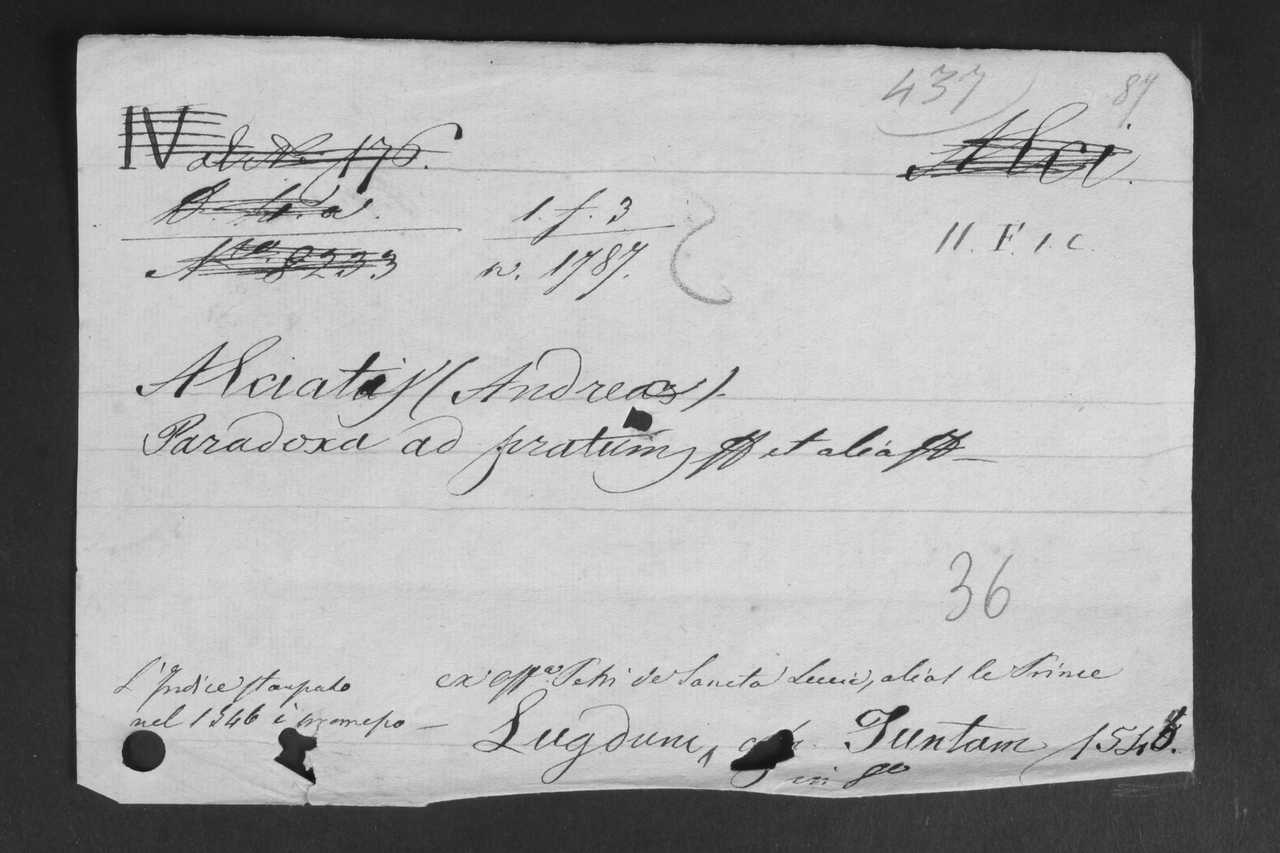 437
87
IV 176.
Alci.
1. f. 3
n. 1787.
N.ro 8233
II. F. 1. C.
Alciatus (Andreas).
Paradoxa ad pratum, ff et alia ff
36
L'Indice stampato
nel 1546 è
ex off.a Petri de Sancta Lucia, alias le Prince
Lugduni, Juntam 154
in 8o